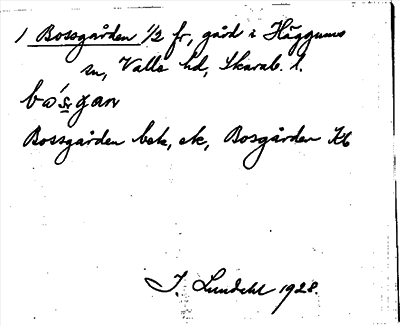 1 Bossgården 1/2 fr, gård i Häggums
sn, Valle hd, Skarab. l.
bɷ́sgan
Bossgården bek, ek, Bosgården Kb
I. Lundahl 1928.